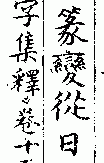 篆變從日
字集釋卷十